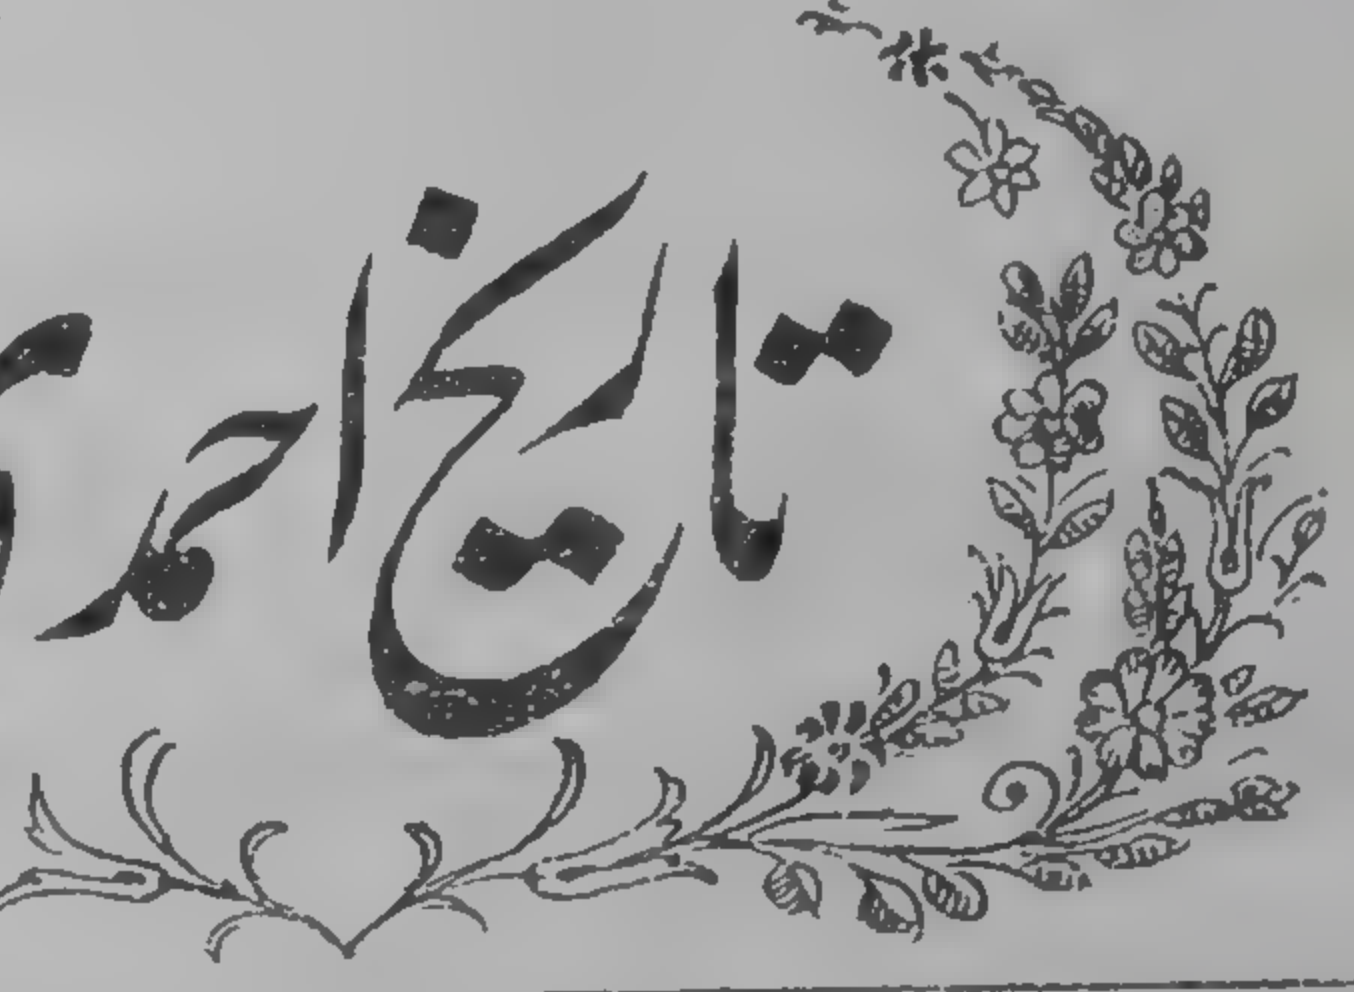 تاریخ احمد